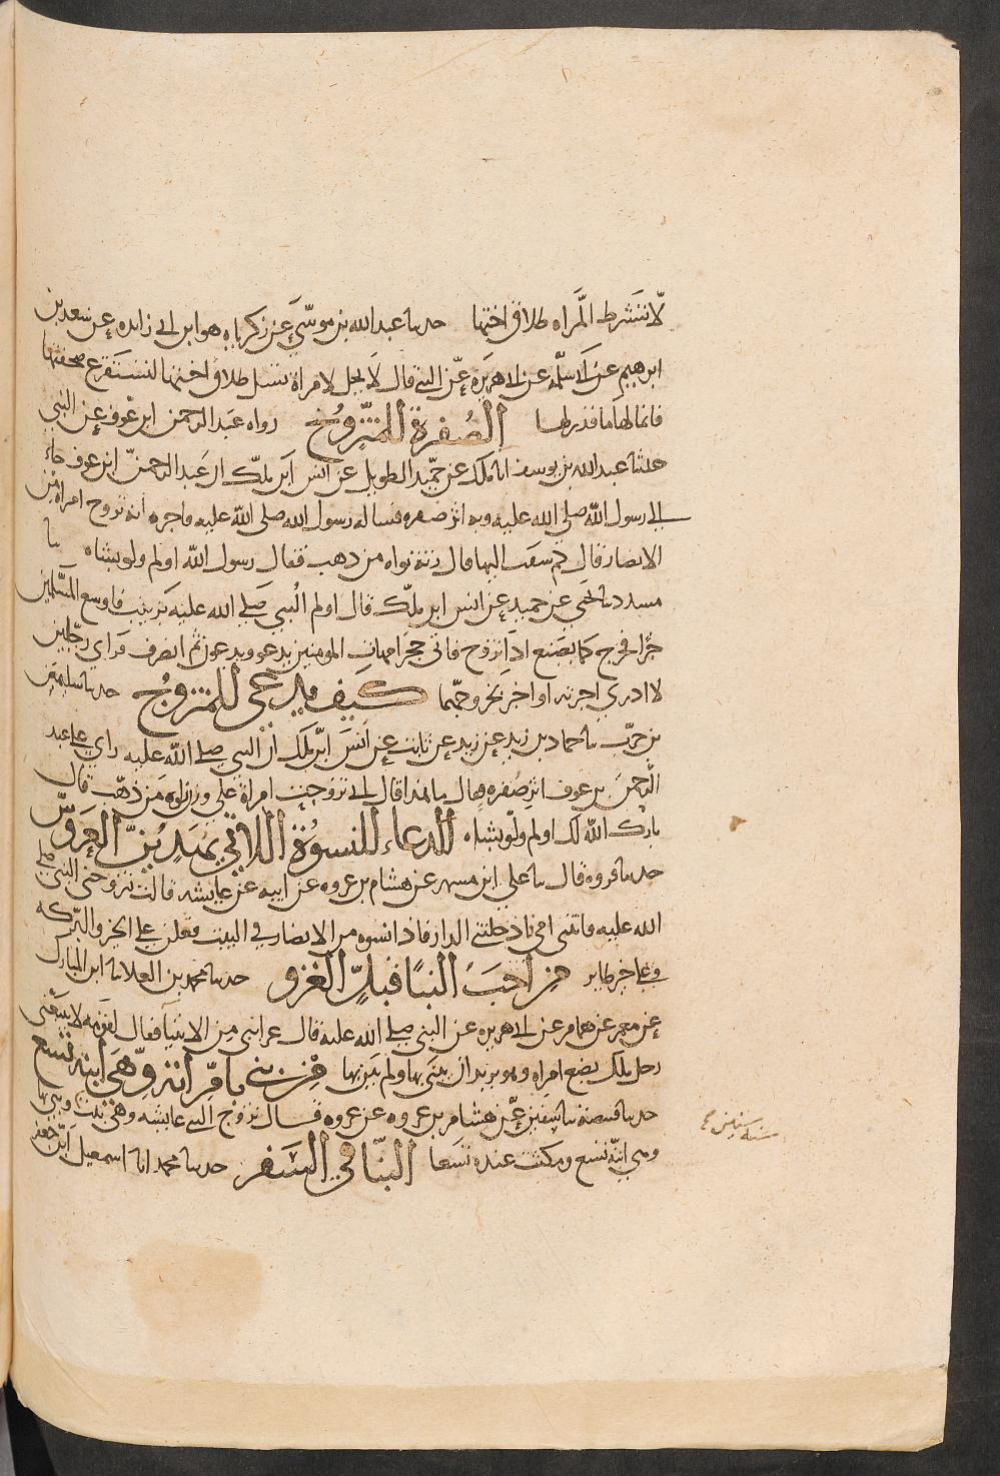 لا تشترط المراه طلاق اختها حدثنا عبد الله بن موسى عن زكرياء هو ابن ابي زايده عن سعد بن
ابرهيم عن ابي سلمه عن ابي هريره عن النبي قال لا يحل لامراة تسل طلاق اختها لتستفرغ صحفتها
فانما لها ما قدر لها الصفرة للمتزوج رواه عبد الرحمن ابن عوف عن النبي
حدثنا عبد الله بن يوسف انا ملك عن حميد الطويل عن انس ابن ملك ان عبد الرحمن ابن عوف جاء
الى رسول الله صلى الله عليه وبه اثر صفره فساله رسول الله صلى الله عليه فاخبره انه تزوج امراه من
الانصار قال كم سقت اليها قال زنة نواه من ذهب فقال رسول الله اولم ولو بشاه نا
مسدد نا يحيي عن حميد عن انس ابن ملك قال اولم النبي صلى الله عليه بزينب فاوسع المسلمين
خيرا فخرج كما يصنع اذا تزوج فاتى حجر امهات المومنين يدعو ويدعون ثم انصرف فراي رجلين
لا ادري اخبرته او اخبر بخروجهما كيف يدعى للمتزوج حدثنا سليمن
بن حرب نا حماد بن زيد عن زيد عن ثابت عن انس ابن ملك ان النبي صلى الله عليه راي على عبد
الرحمن بن عوف اثر صفره قال ما هذا قال اني تزوجت امراة على وزن نواه من ذهب قال
بارك الله لك اولم ولو بشاه الدعاء للنسوة اللاتي يهدين العروس
حدثنا فروه قال نا علي ابن مسهر عن هشام بن عروه عن ابيه عن عايشه قالت تزوجني النبي صلى
الله عليه فاتتني امي فادخلتني الدار فاذا نسوه من الانصار في البيت فقلن على الخير والبركه
وعلى خير طاير من احب البنا قبل الغزو حدثنا محمد بن العلا نا ابن المبارك
عن معمر عن همام عن ابي هريره عن النبي صلى الله عليه قال غزا نبي من الانبيا فقال لقومه لا يتبعني
رجل ملك بضع امراه وهو يريد ان يبني بها ولم يبن بها من بنى بامراة وهي ابنة تسع
حدثنا قبيصة نا سفين عن هشام بن عروه عن عروه قال تزوج النبي عايشه وهي بنت وبنى بها
وهي ابنة تسع ومكثت عنده تسعا البنا في السفر حدثنا محمد انا اسمعيل ابن جعفر
ست سنين